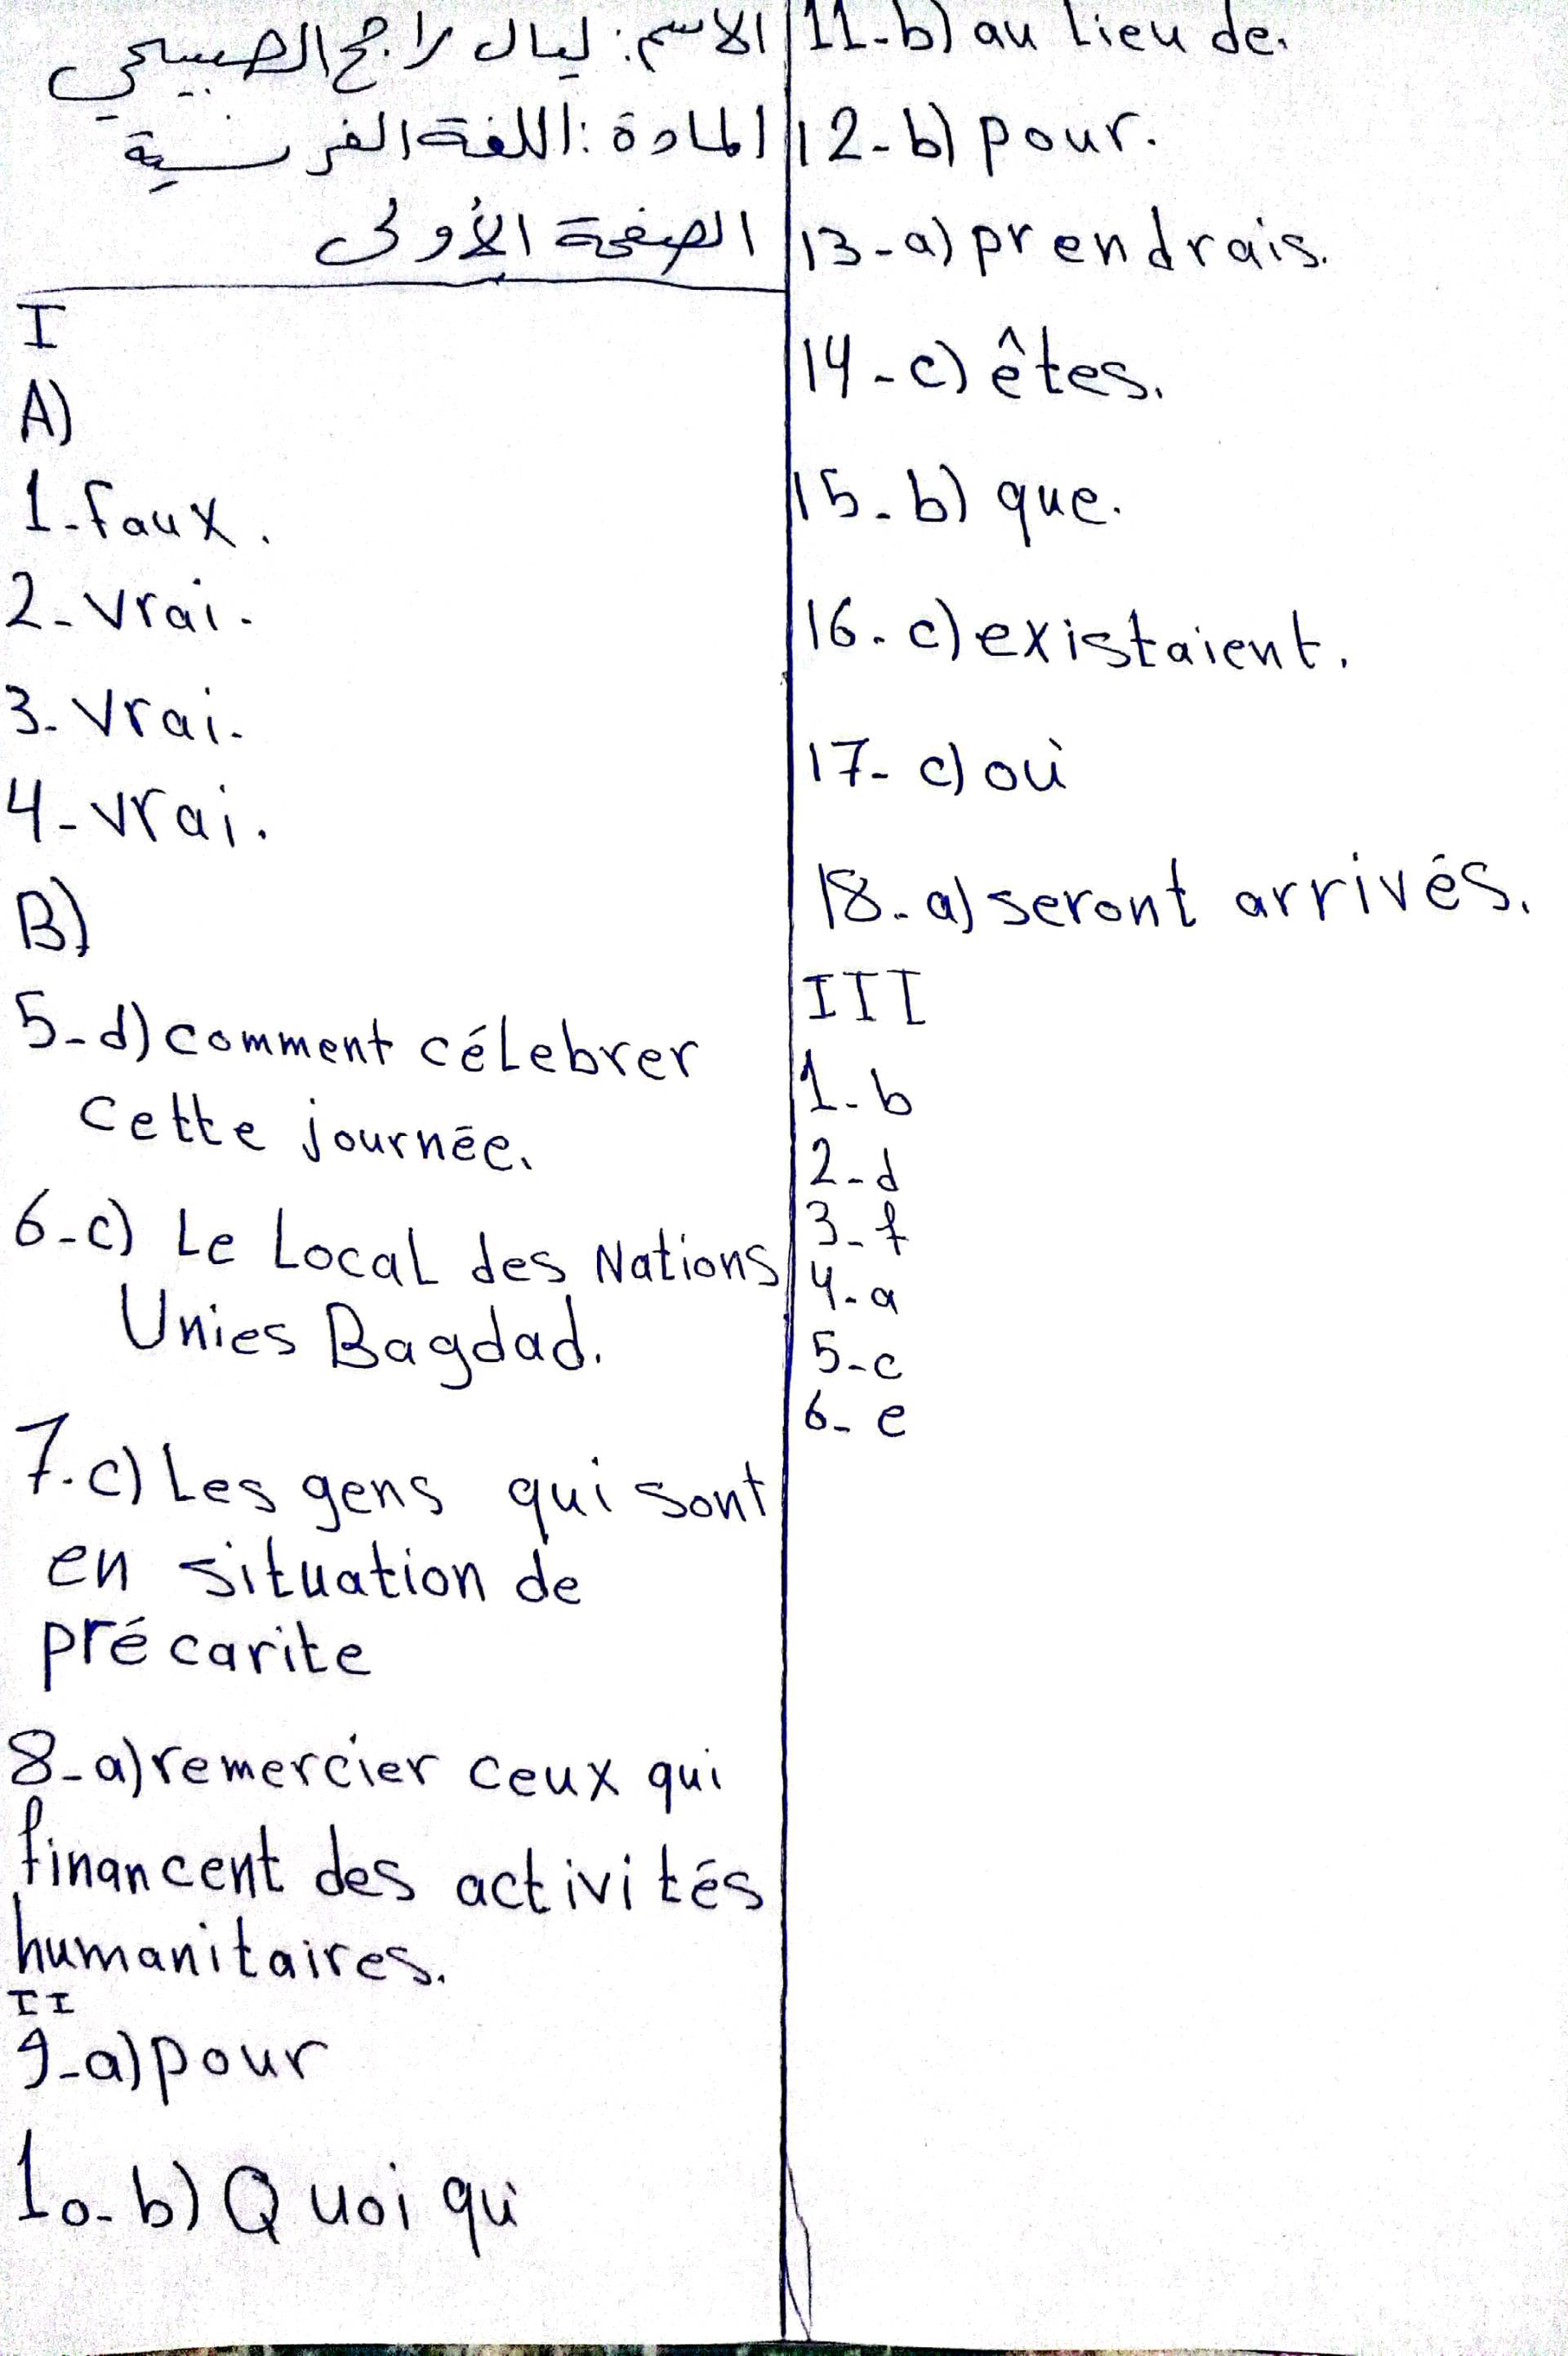 الاسم: ليال راجح الصبيحي
المادة: اللغة الفرنسية
الصفحة الأولى
I
A)
1-faux.
2-vrai.
3-vrai.
4-vrai.
B)
5-d) comment célebrer
cette journée.
6-c) Le Local des Nations
Unies Bagdad.
7-c) Les gens qui sont
en situation de
précarite
8-a) remercier ceux qui
financent des activités
humanitaires.
II
9-a) pour
10-b) Quoi qu
11-b) au lieu de.
12-b) pour.
13-a) prendrais.
14-c) êtes.
15-b) que.
16-c) existaient.
17-c) où
18-a) seront arrivés.
III
1-b
2-d
3-f
4-a
5-c
6-e